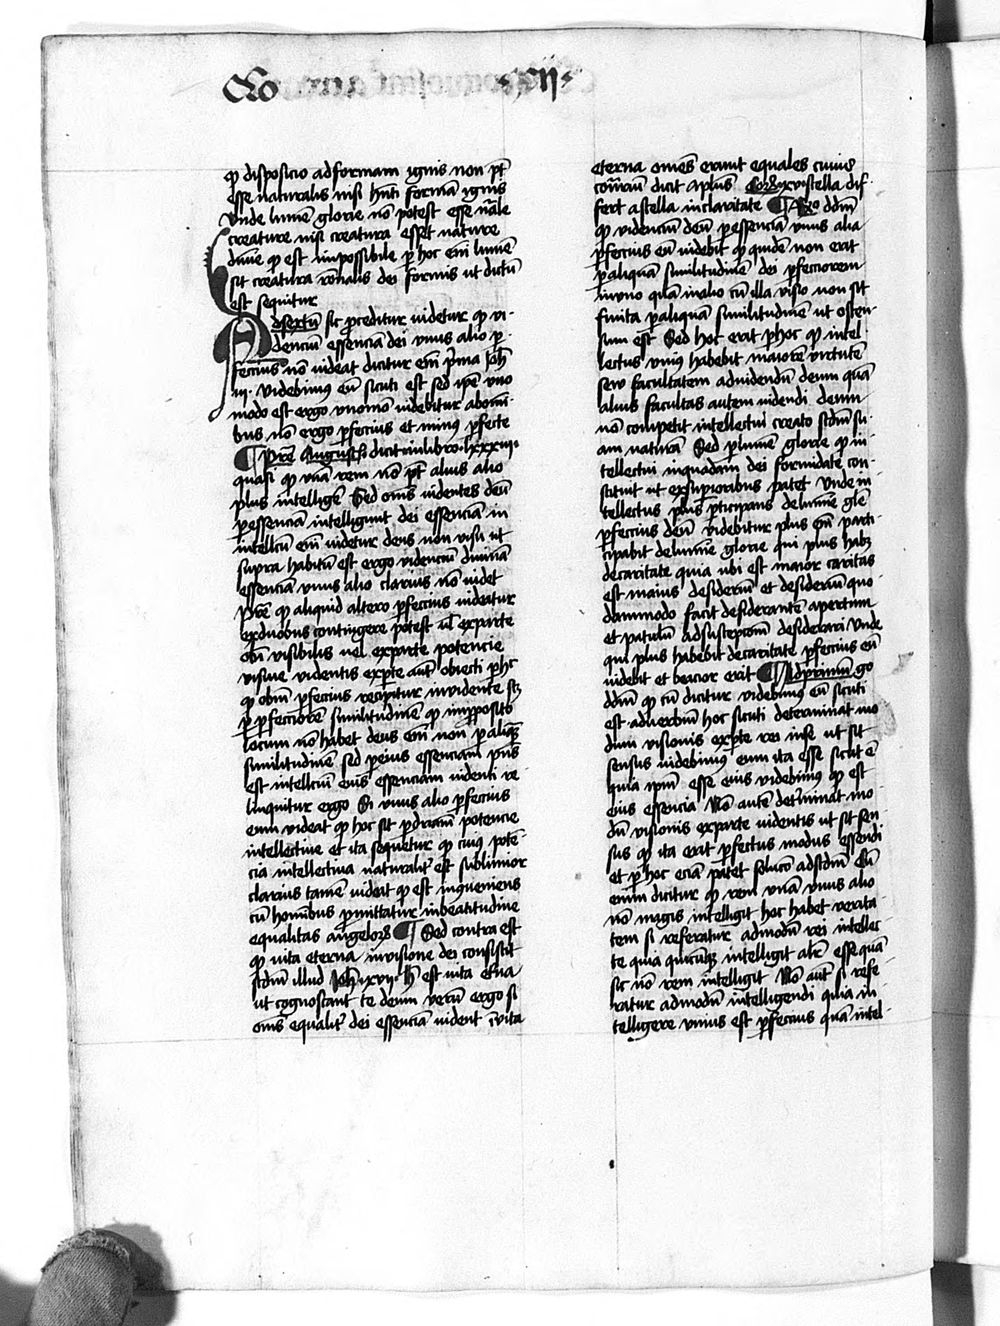 Q̄o · xii ·
ꝙ disposicio ad formam ignis non pt̄
esse naturalis nisi hn̄ti formā ignis
vnde lumē glorie nō potest esse nr̄ale
creature nisi creatura esset nature
diuīe ꝙ est impossibile ꝑ hoc em̄ lumē
fit creatura rōnalis dei formis ut dictū
est sequitur
Ad sextū sic ꝓceditur videtur ꝙ vi-
denciū essenciā dei vnus alio ꝑ-
fectius nō videat dicitur em̄ prima Joh̄
iii· videbimus eū sicuti est sed ip̄e vno
modo est ergo vnomō videbitur ab om̄i-
bus nō ergo ꝑfectius et minus ꝑfecte
¶ Pret̄ Augustꝰ dicit in libro lxxxiii
quasi ꝙ vnā rem nō pt̄ alius alio
plus intelligē Sed om̄s videntes deū
ꝑ essenciā intelligunt dei essenciā in
intellcū em̄ videtur deus non visu ut
supra habitū est ergo videnciū diuinā
essenciā vnus alio clarius nō videt
Pret̄ ꝙ aliquid altero ꝑfectius videatur
ex duobus contingere potest ul̄ ex parte
obi̅ visibilis uel ex parte potencie
visiue videntis ex ꝑte aut̄ obiecti ꝑ hͦ
ꝙ obm̄ ꝑfectius recipitur in vidente sꝫ
ꝑ ꝑfectiorē similitudinē ꝙ in ꝓposito
locum nō habet deus em̄ non ꝑ aliquā
similitudinē sed ꝑ eius essenciam pn̄s
est intellcui eius essenciam videnti re-
linquitur ergo Si vnus alio ꝑfectius
eum videat ꝙ hoc sit ꝑ dr̄iam potencie
intellectiue et ita sequetur ꝙ cuius potē-
cia intellectiua naturalit̄ est sublimior
clarius tamē videat ꝙ est inqueniens
cū hominibus ꝓmittatur in beatitudine
equalitas angelorꝫ ¶ Sed contra est
ꝙ vita eterna in visione dei consistit
scdm̄ illud Joh̄ xvii· h̄ est vita et̄na
ut cognoscant te deum verū ergo si
om̄s equalit̄ dei essenciā vident ī vita
eterna omēs erunt equales cuius
cōtrariū dicit aplūs Cor· xv stella dif-
fert a stella in claritate ¶ Rͦ dd̄m
ꝙ videnciū deū ꝑ essenciā vnus alio
ꝑfectius eū videbit ꝙ quidē non erit
ꝑ aliquā similitudinē dei ꝑfectiorem
in vno quā in alio cū illa visio non sit
futura ꝑ aliquā similitudinē ut osten-
sum est Sed hoc erit ꝑ hoc ꝙ intel-
lectus vnius habebit maiorē virtutē
seu facultatem ad videndū deum quā
alius facultas autem videndi deum
nō competit intellectui creato scdm̄ su-
am naturā Sed ꝑ lumē glorie ꝙ in-
tellectū in quadam dei formitate con-
stituit ut ex suꝑioribus patet Vnde in-
tellectus plus ꝑticipans de lumīe glē
ꝑfectius deū videbitur plus em̄ parti-
cipabit de lumīe glorie qui plus habꝫ
de caritate quia ubi est maior caritas
est maius desideriū et desideriū quo-
dammodo facit desiderantē apertum
et paratū ad suscepcionē desiderati Vnde
qui plus habebit de caritate ꝑfectius eū
videbit et beatior erit ¶ Ad primū go
dd̄m ꝙ cū dicitur videbimus eū sicuti
est aduerbiū hoc sicuti determinat mo-
dum visionis ex ꝑte rei vise ut sit
sensus videbimus eum ita esse sicut ē
quia ipm̄ esse eius videbimus ꝙ est
eius essencia Nō autē det̄minat mo-
dū visionis ex parte videntis ut sit sen-
sus ꝙ ita erit ꝑfectus modus essendi
et ꝑ hoc eciā patet solucō ad scdm̄ Cū
enim dicitur ꝙ rem vnā vnus alio
nō magis intelligit hoc habet verita-
tem si referatur ad modū rei intellec-
te quia quicūqꝫ intelligit alit̄ esse quā
sit nō rem intelligit Nō aut̄ si refe-
ratur ad modū intelligendi quia in-
telligere vnius est ꝑfectius quā intel-